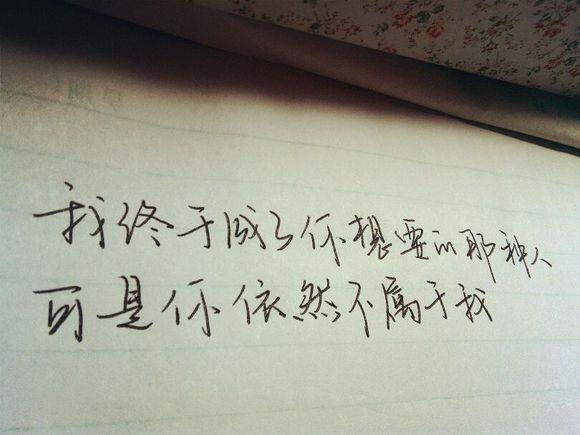 我终于成了你想要的那种人
可是你依然不属于我